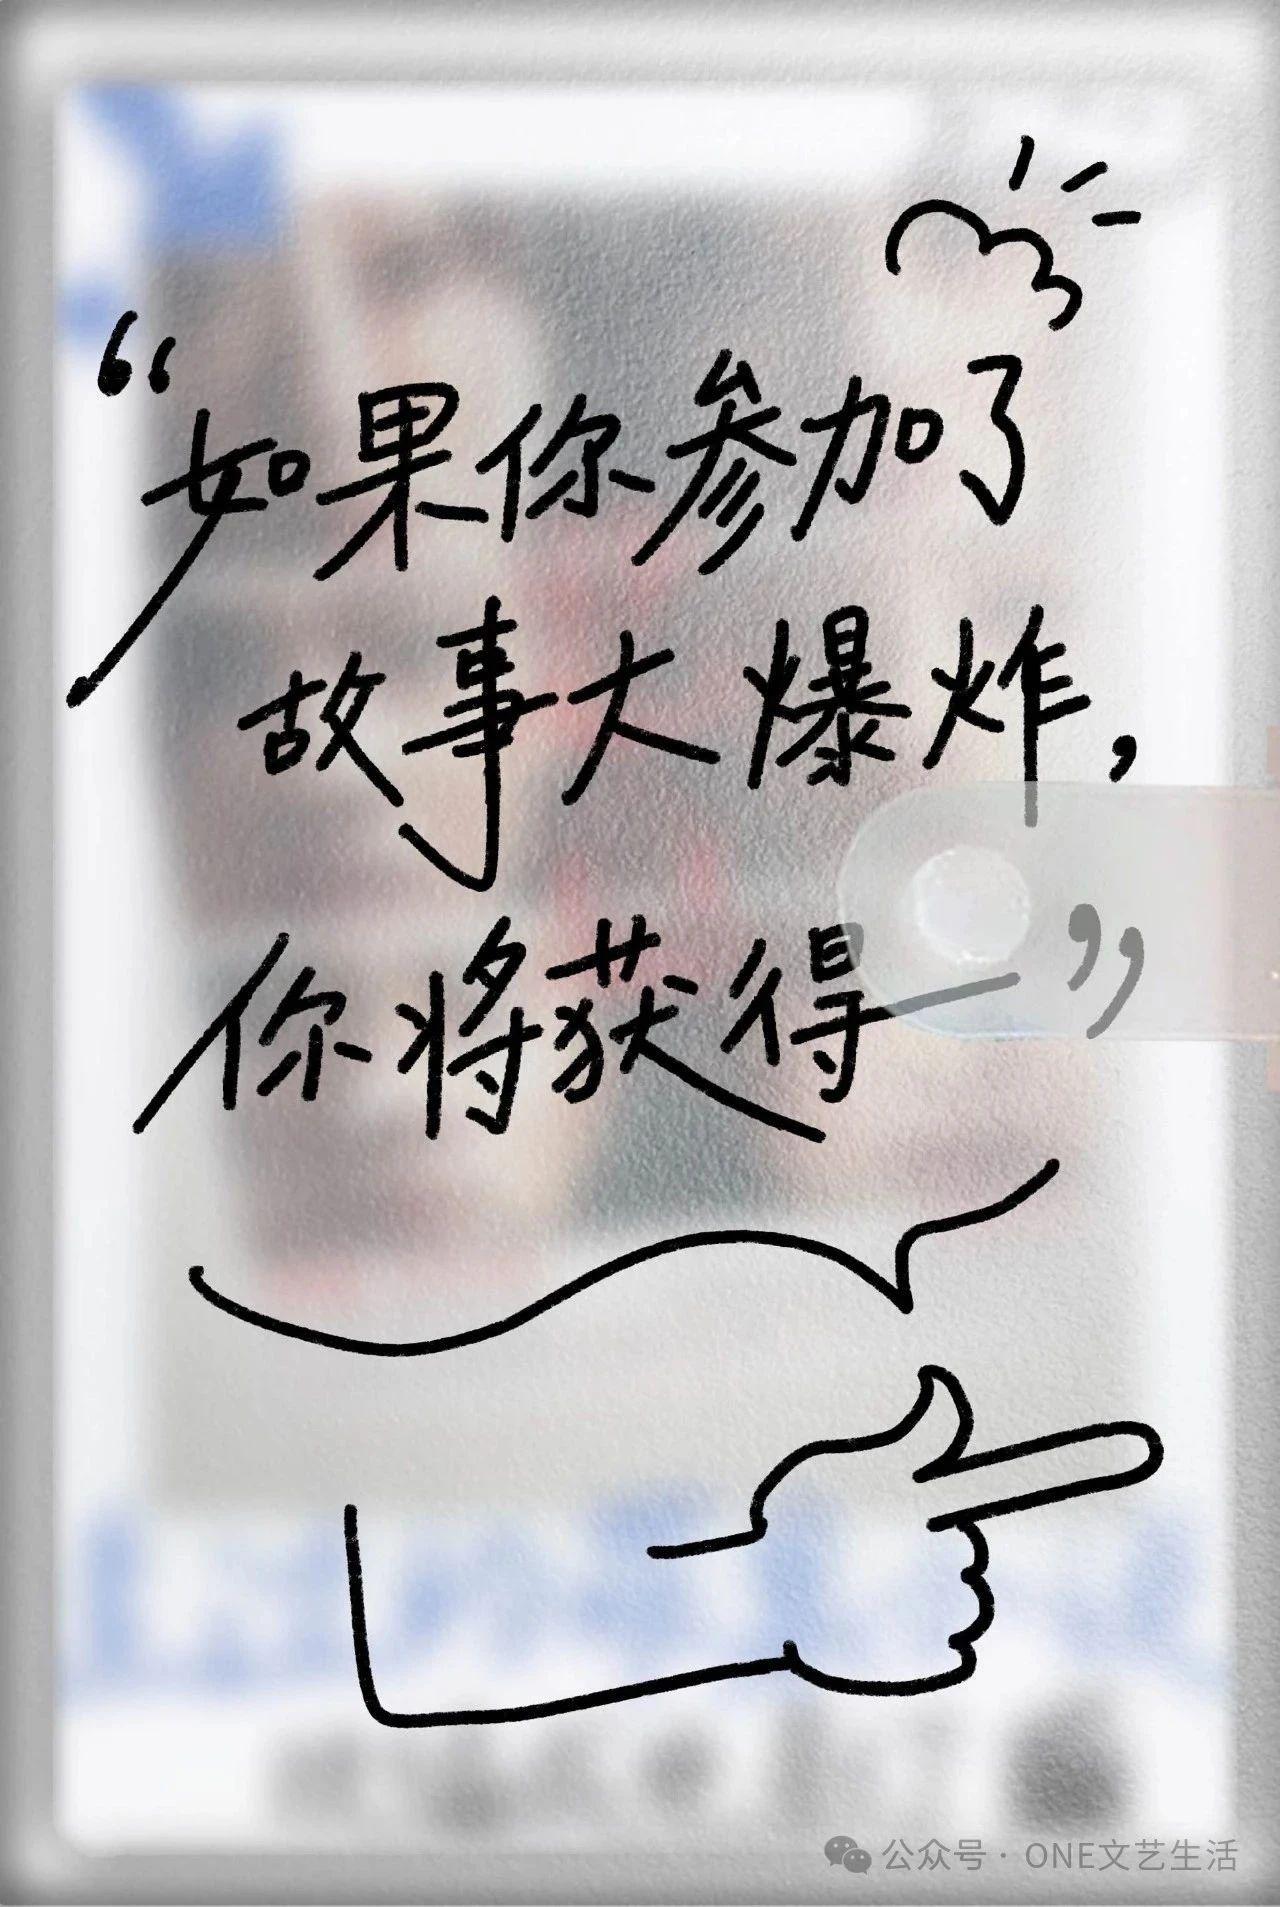 “如果你参加了
故事大爆炸，
你将获得”
公众号·ONE文艺生活